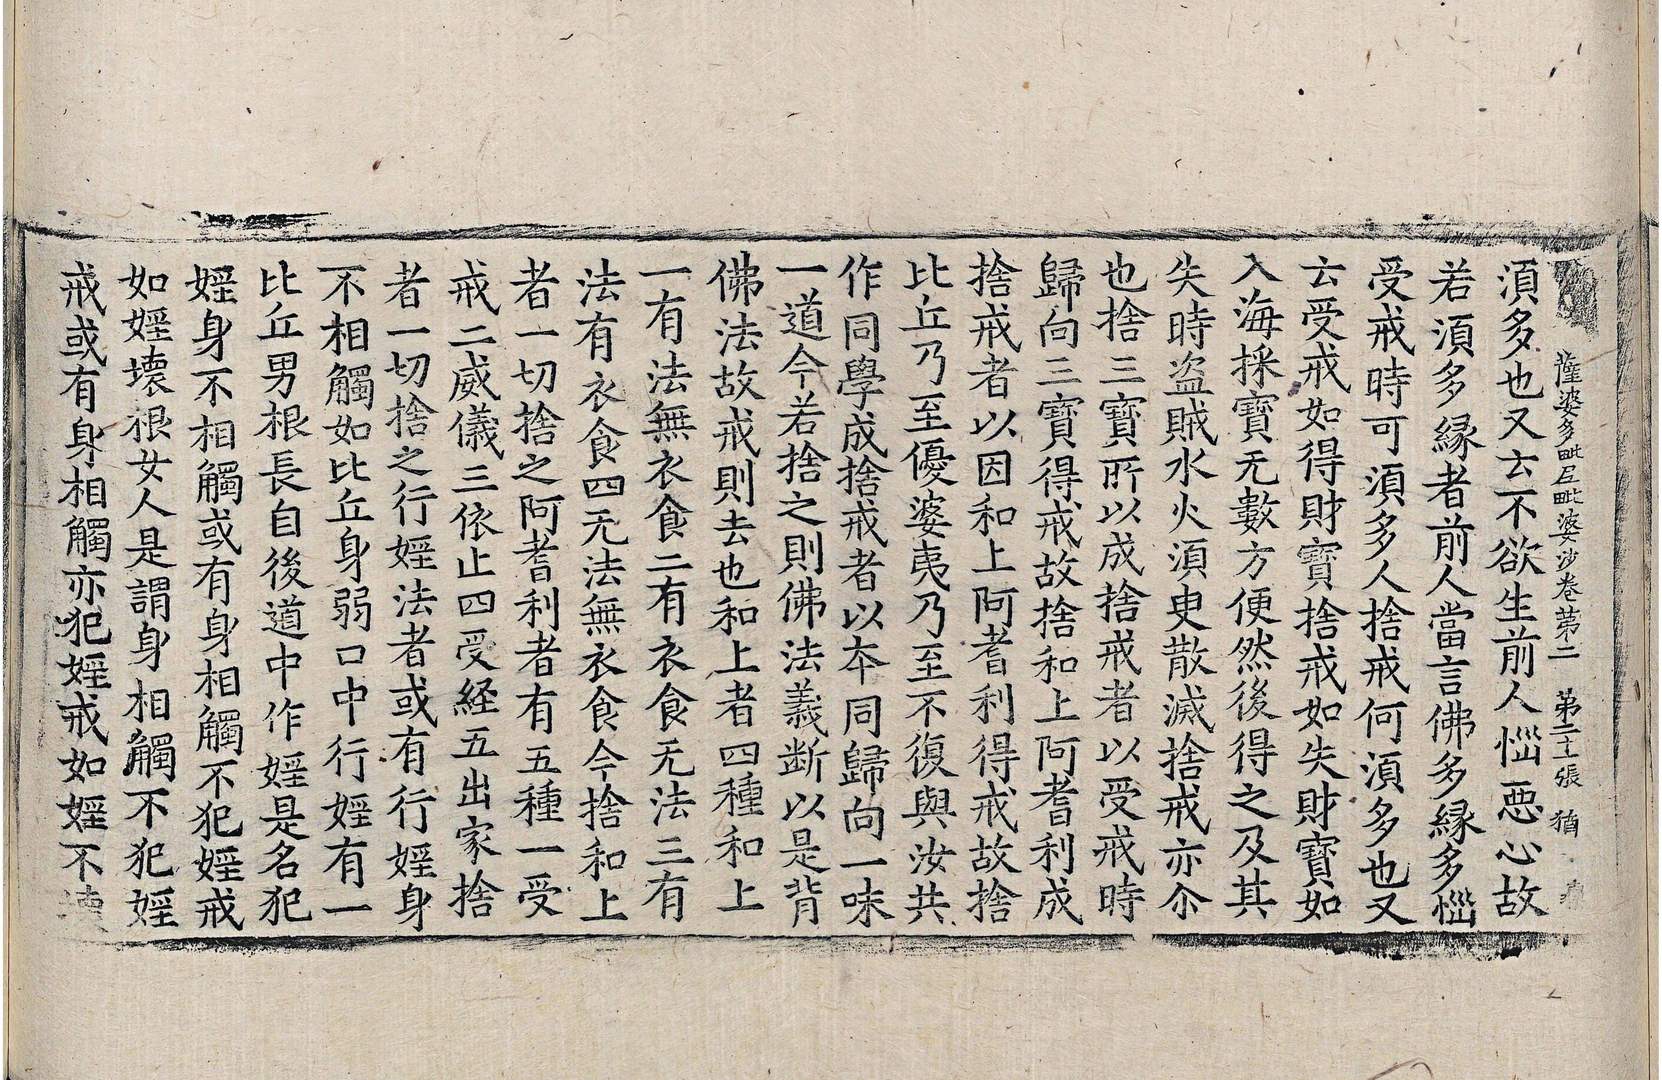 薩婆多毗尼毗婆沙卷苐二　第二十張　猶
湏多也又云不欲生前人惱惡心故
若湏多緣者前人當言佛多緣多惱
受戒時可湏多人捨戒何湏多也又
云受戒如得財寶捨戒如失財寶如
入海採寶无數方便然後得之及其
失時盜賊水火湏臾散滅捨戒亦尒
也捨三寶所以成捨戒者以受戒時
歸向三寶得戒故捨和上阿耆利成
捨戒者以因和上阿耆利得戒故捨
比丘乃至優婆夷乃至不復與汝共
作同學成捨戒者以夲同歸向一味
一道今若捨之則佛法義斷以是背
佛法故戒則去也和上者四種和上
一有法無衣食二有衣食无法三有
法有衣食四无法無衣食今捨和上
者一切捨之阿耆利者有五種一受
戒二威儀三依止四受経五出家捨
者一切捨之行婬法者或有行婬身
不相觸如比丘身弱口中行婬有一
比丘男根長自後道中作婬是名犯
婬身不相觸或有身相觸不犯婬戒
如婬壞根女人是謂身相觸不犯婬
戒或有身相觸亦犯婬戒如婬不壞